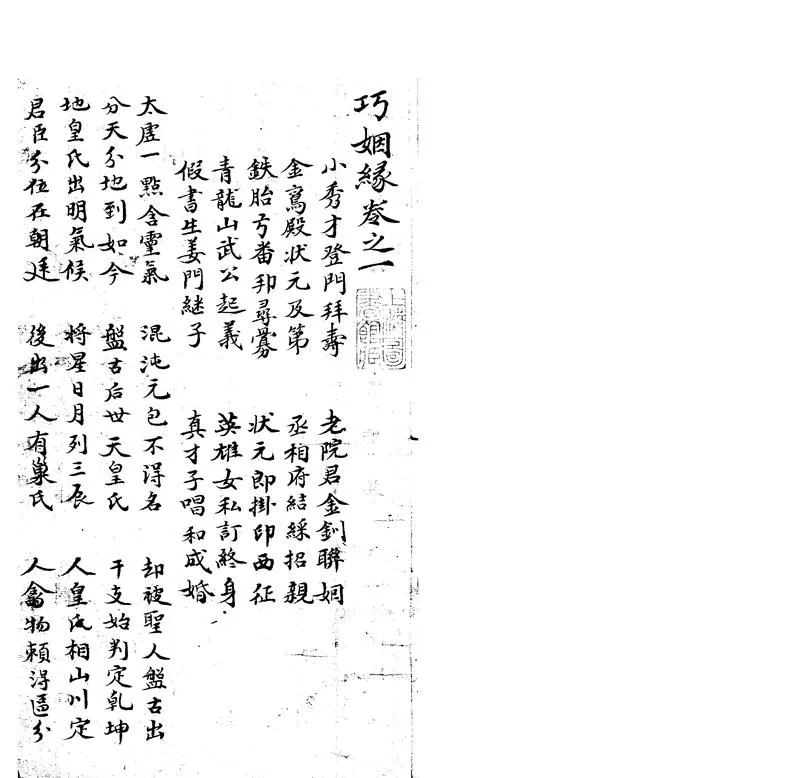 巧姻緣卷之一
小秀才登門拜壽 老院君金釧聯姻
金鸞殿状元及第 丞相府結綵招親
鉄胎弓番邦尋釁 状元郎掛印西征
青龍山武公起義 英雄女私訂終身
假書生姜門継子 真才子唱和成婚
太虚一點含靈氣 混沌元包不得名 却被聖人盤古出
分天分地到如今 盤古后世天皇氏 干支始判定乾坤
地皇氏出明氣候 将星日月列三辰 人皇氏相山川定
君臣分位在朝廷 後出一人有巢氏 人禽物賴得區分